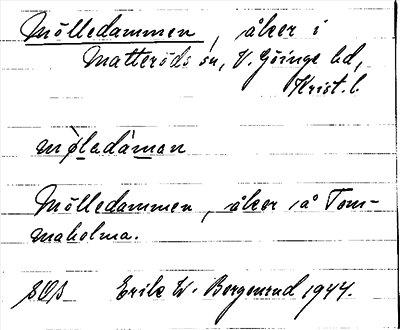 Mölledammen, åker i
Matteröds sn, V. Göinge hd,
Krist. l.
mø̀ladàman
Mölledammen, åker å Tom-
maholma.
Erik W. Bergenrud 1944.